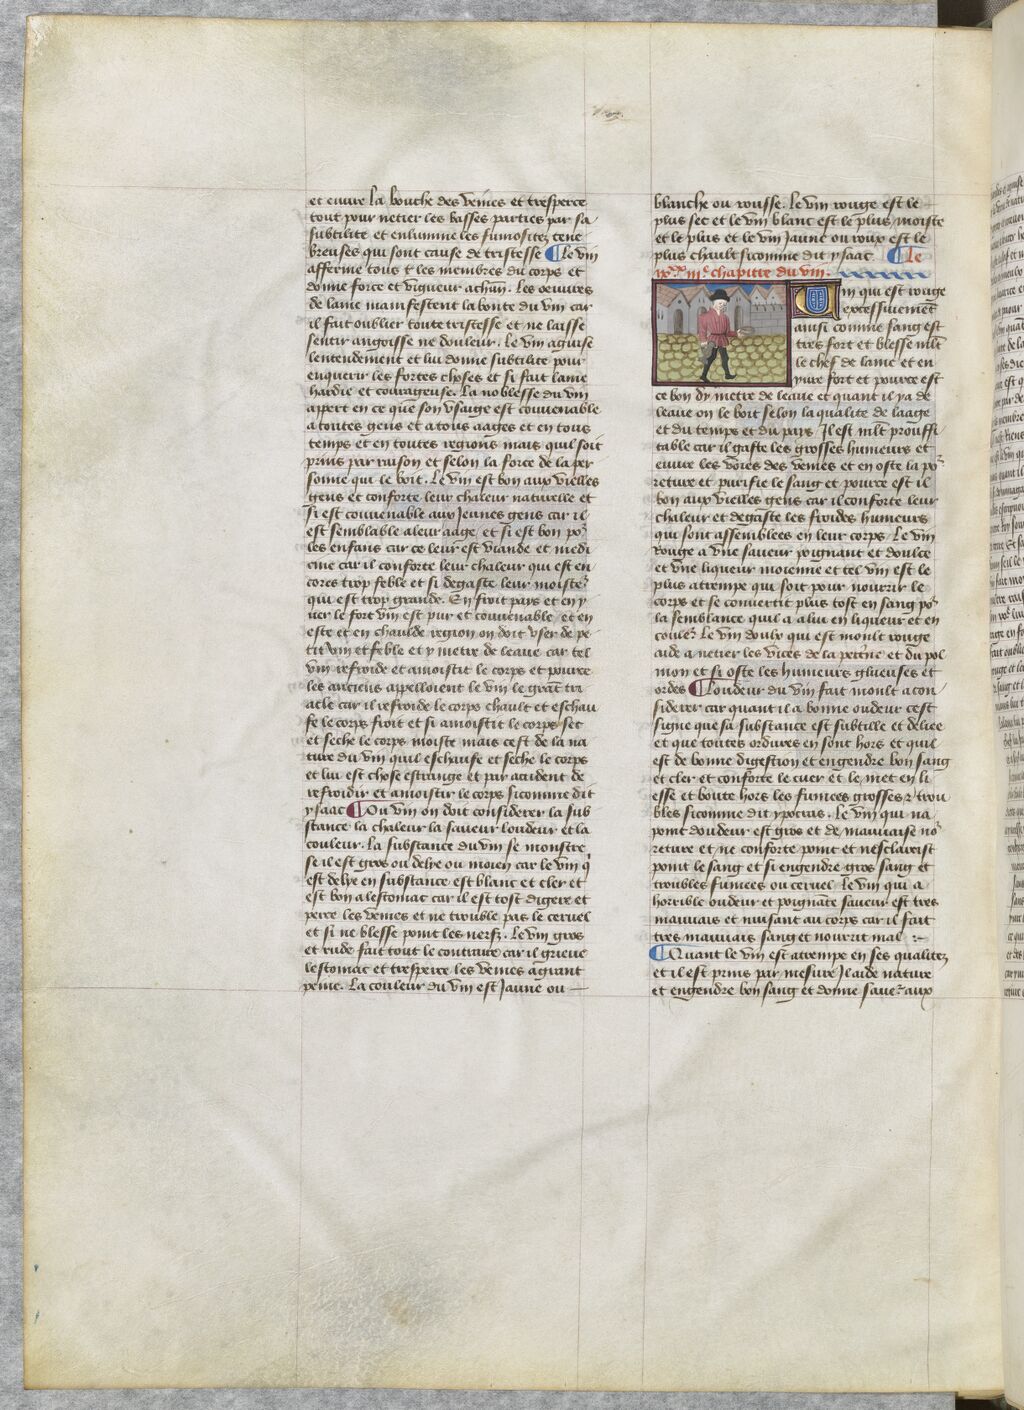 et euure la bouche des veines et tresperce
tout pour netier les basses parties par sa
subtilite et enlumine les fumositez tene
breuses qui sont cause de tristesse ¶ Le vin
afferme tous les membres du corps et
donne force et vigueur a chun. Les oeuures
de lame manifestent la bonte du vin car
il fait oublier toute tristesse et ne laisse
sentir angoisse ne douleur. Le vin aguise
lentendement et lui donne subtilite pour
enquerir les fortes choses et si fait lame
hardie et courageuse. La noblesse du vin
appert en ce que son vsaige est couuenable
a toutes gens et a tous aages et en tous
temps et en toutes regions mais quil soit
prins par raison et selon la force de la per
sonne qui le boit. Le vin est bon aux vieilles
gens et conforte leur chaleur naturelle et
si est couuenable aux Jeunes gens car il
est semblable a leur aage et si est bon po᷑
les enfans car ce leur est viande et medi
cine car il conforte leur chaleur qui est en
cores trop feble et si degaste leur moiste᷑
qui est trop grande. En froit pays et en y
uer le fort vin est pur et couuenable et en
este et en chaulde region on doit vser de pe
tit vin et feble et y metre de leaue car tel
vin refroide et amoistit le corps et pource
les anciens appelloient le vin le grāt tri
acle car il refroide le corps chault et eschau
fe le corps froit et si amoistit le corps sec
et seche le corps moiste mais cest de la na
ture du vin quil eschaufe et seche le corps
et lui est chose estrange et par accident de
refroidir et amoistir le corps sicomme dit
ysaac ¶ Ou vin on doit considerer la sub
stance la chaleur la saueur loudeur et la
couleur. La substance du vin se monstre
se il est gros ou delye ou moien car le vin q̄
est delye en substance est blanc et cler et
est bon a lestomac car il est tost digere et
perce les veines et ne trouble pas le ceruel
et si ne blesse point les nerfz. Le vin gros
et rude fait tout le contraire car il grieue
lestomac et tresperce les veines a grant
peine. La couleur du vin est Jaune ou
blanche ou rousse. Le vin rouge est le
plus sec et le vin blanc est le plus moiste
et le plus et le vin Jaune ou roux est le
plus chault sicomme dit ysaac. ¶ Le
chapitre du vin.
in qui est rouge
excessiuement
ainsi comme sang est
tres fort et blesse mlt
le chef de lame et en
yure fort et pource est
ce bon dy metre de leaue et quant il ya de
leaue on le boit selon la qualite de laage
et du temps et du pays Il est mlt prouffi
table car il gaste les grosses humeurs et
euure les voies des veines et en oste la po᷑
reture et purifie le sang et pource est il
bon aux vieilles gens car il conforte leur
chaleur et degaste les froides humeurs
qui sont assemblees en leur corps. Le vin
Rouge a vne saueur poignant et doulce
et vne liqueur moienne et tel vin est le
plus attrempe qui soit pour nourrir le
corps et se conuertit plus tost en sang po᷑
la semblance quil a a lui en liqueur et en
coule᷑. Le vin doulx qui est moult rouge
aide a netier les vices de la petrine et du pol
mon et si oste les humeurs glueuses et
ordes ¶ Loudeur du vin fait moult a con
siderer car quant il a bonne oudeur cest
signe que sa substance est subtille et deliee
et que toutes ordures en sont hors et quil
est de bonne digestion et engendre bon sang
et cler et conforte le cuer et le met en li
esse et boute hors les fumees grosses et trou
bles sicomme dit ypocras. Le vin qui na
point doudeur est gros et de mauuaise no᷑
reture et ne conforte point et nesclarcist
point le sang et si engendre gros sang et
troubles fumees ou ceruel Le vin qui a
horrible oudeur et poignāte saueur est tres
mauuais et nuisant au corps car il fait
tres mauuais sang et nourrit mal
¶ Quant le vin est attrempe en ses qualitez
et il est prins par mesure Il aide nature
et engendre bon sang et donne saue᷑ aux